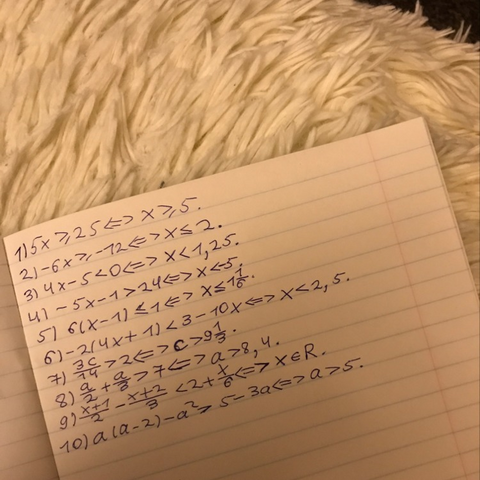 1) 5x ⩾ 25 <=> x ⩾ 5.
2) -6x ⩾ -12 <=> x ≤ 2.
3) 4x - 5 < 0 <=> x < 1,25.
4) -5x - 1 > 24 <=> x < -5.
5) 6(x - 1) ≤ 1 <=> x ≤ 1 1/6.
6) -2(4x + 1) < 3 - 10x <=> x < 2,5.
7) 3c/14 > 2 <=> c > 9 1/3.
8) a/2 + a/3 > 7 <=> a > 8,4.
9) (x+1)/2 - (x+2)/3 < 2 + x/6 <=> x ∈ R.
10) a(a - 2) - a² > 5 - 3a <=> a > 5.